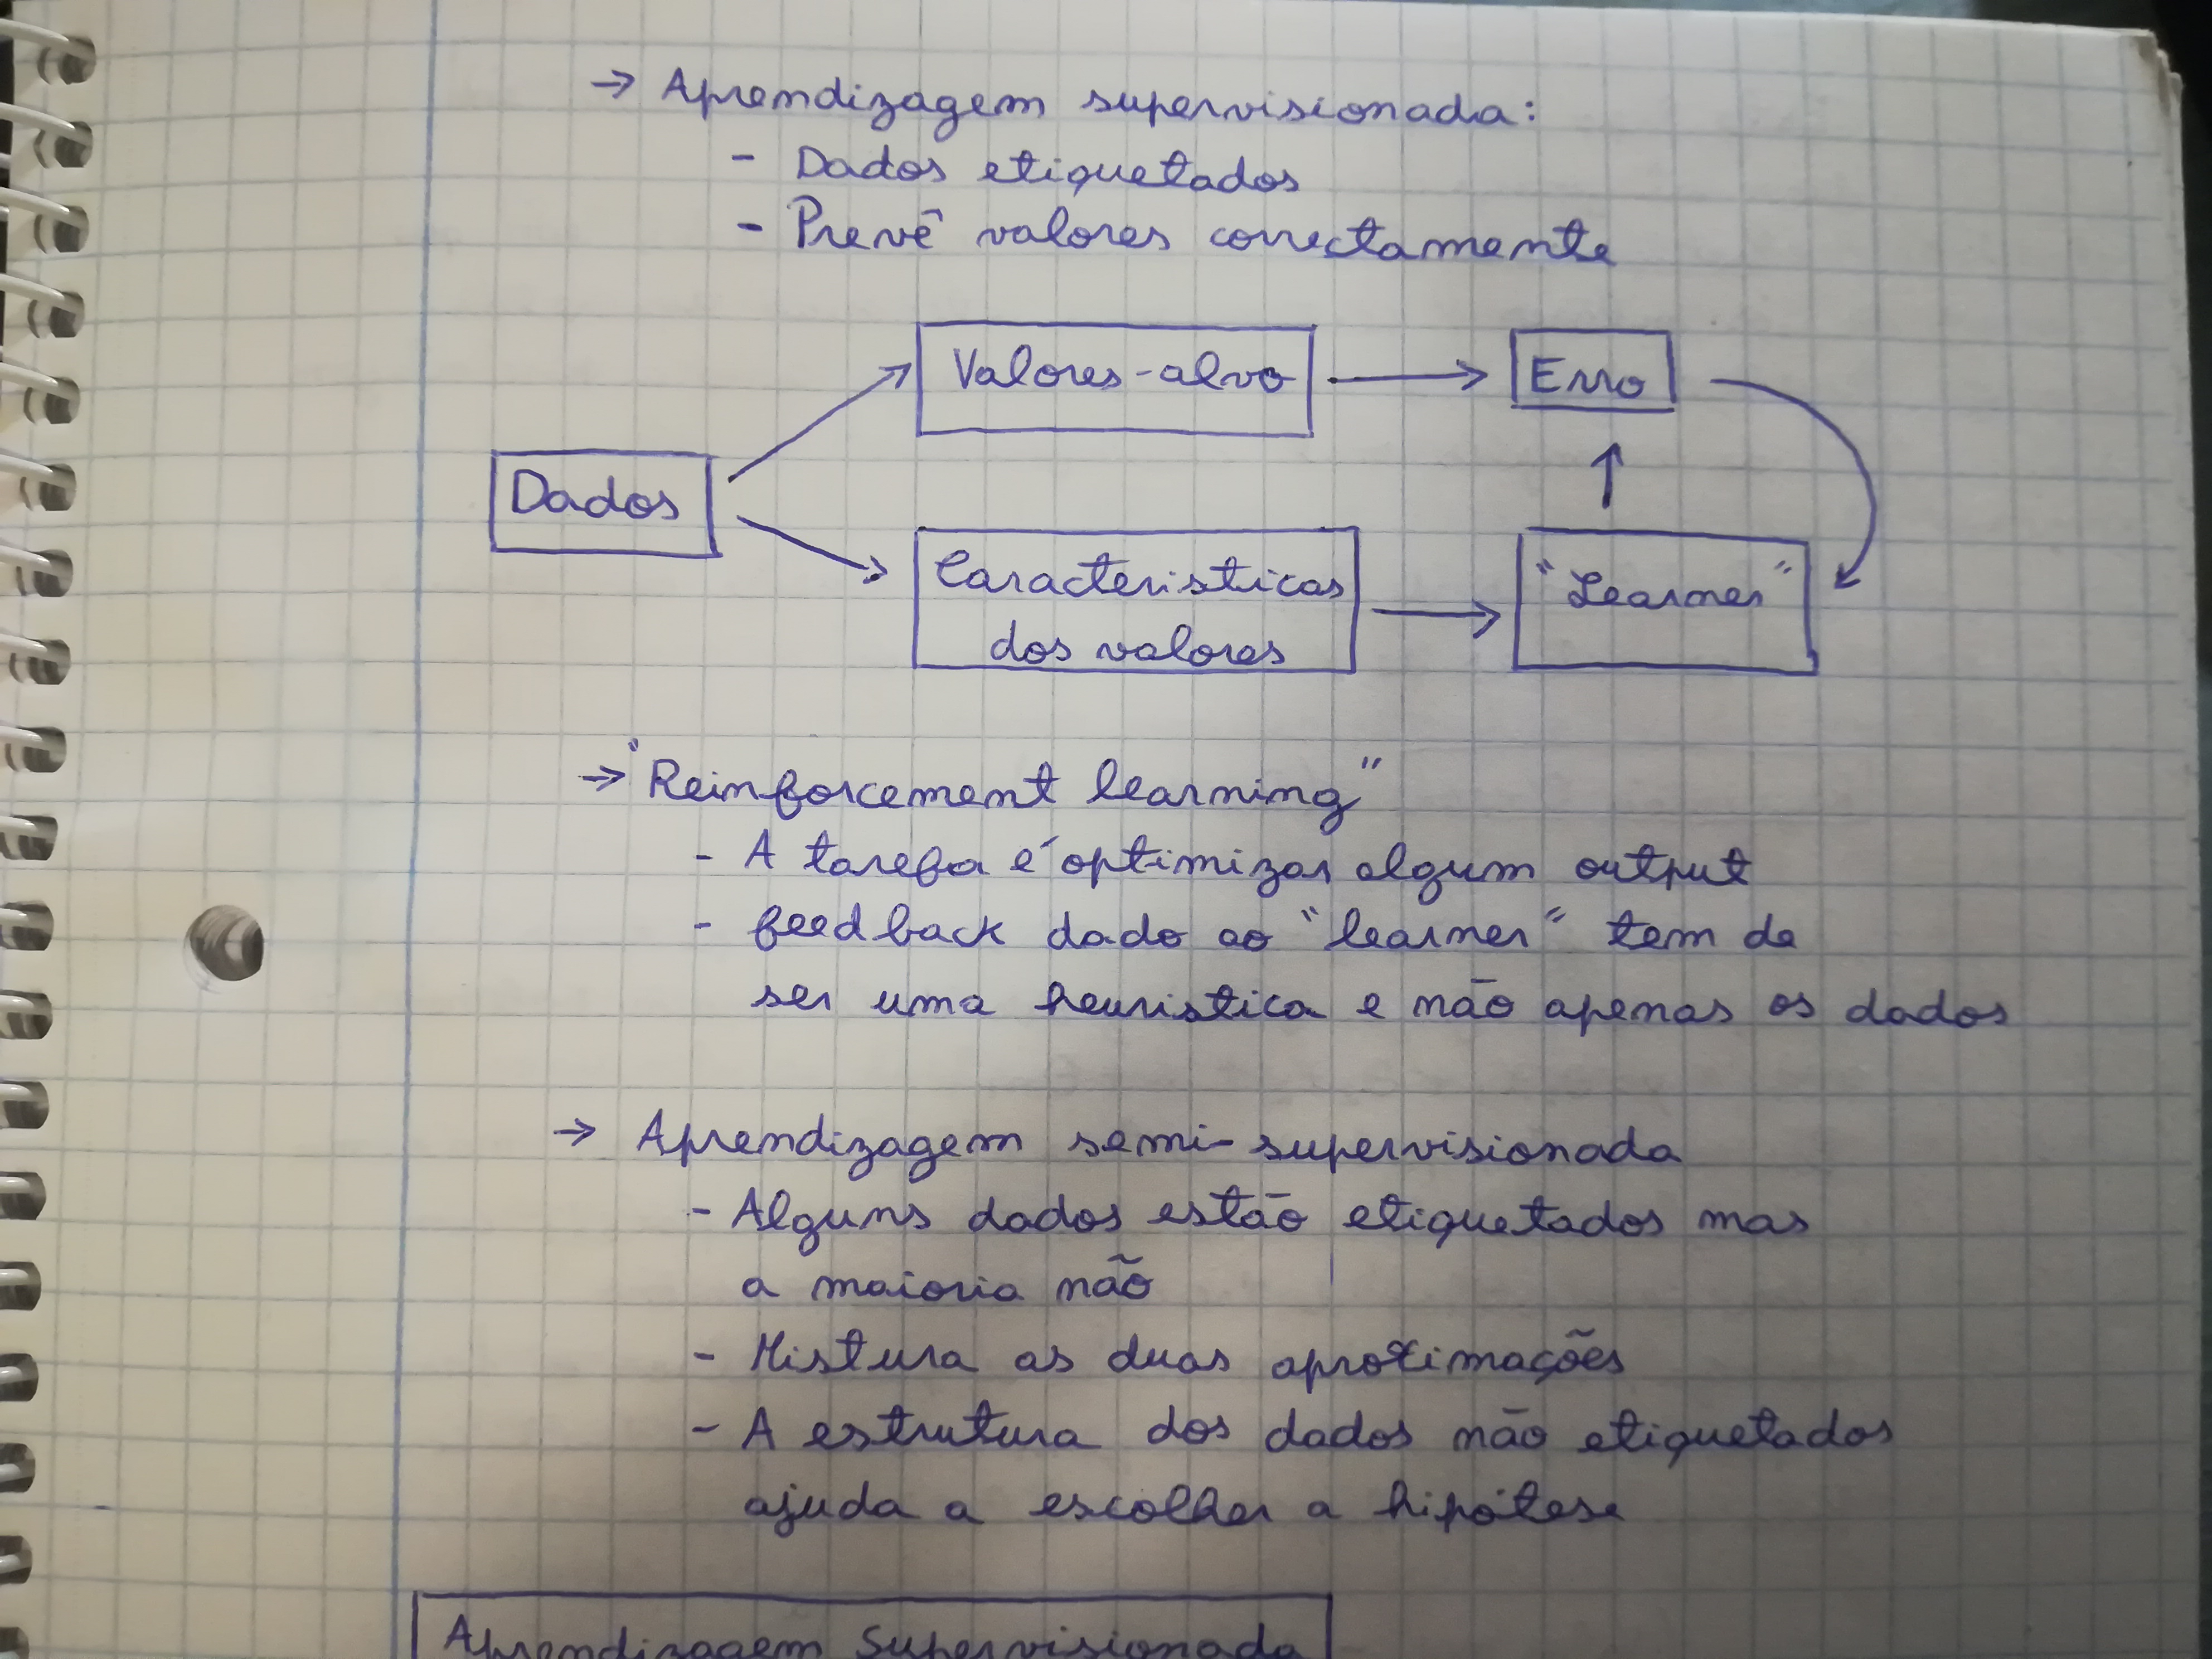 → Aprendizagem supervisionada:
- Dados etiquetados
- Prevê valores correctamente
Valores-alvo
Erro
Dados
Caracteristicas
dos valores
"Learner"
→ "Reinforcement learning"
- A tarefa é optimizar algum output
- feedback dado ao "learner" tem de
ser uma heuristica e não apenas os dados
→ Aprendizagem semi-supervisionada
- Alguns dados estão etiquetados mas
a maioria não
- Mistura as duas aproximações
- A estrutura dos dados não etiquetados
ajuda a escolher a hipótese
Aprendizagem Supervisionada